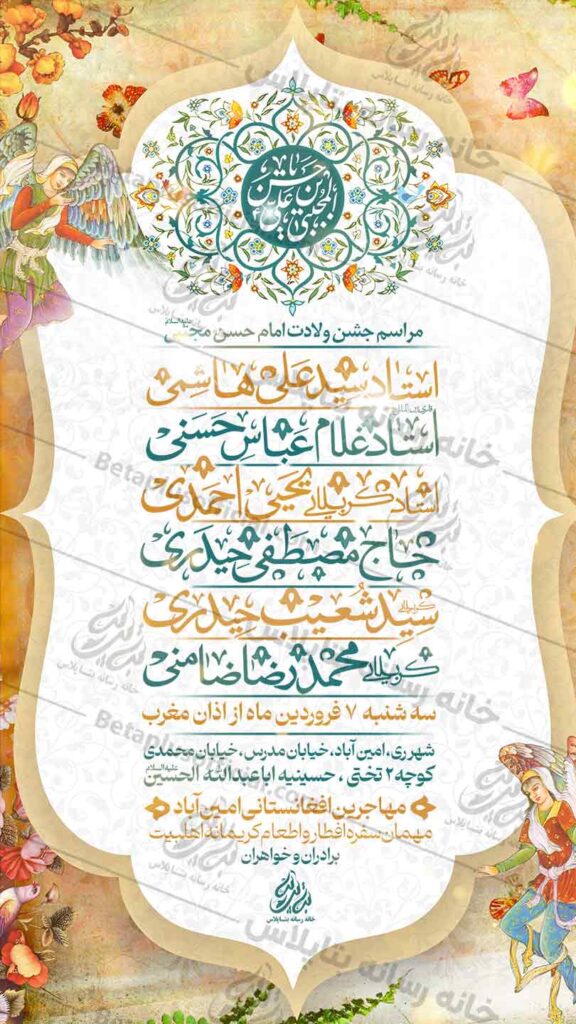 یا حسن بن علی المجتبی
مراسم جشن ولادت امام حسن مجتبی علیه‌السلام
استاد سید علی هاشمی
استاد غلام عباس حسنی
استاد کربلائی یحیی احمدی
حاج مصطفی حیدری
کربلائی سید شعیب حیدری
کربلائی محمدرضا ضامنی
سه شنبه ۷ فروردین ماه از اذان مغرب
شهرری، امین آباد، خیابان مدرس، خیابان محمدی
کوچه ۲ تختی ، حسینیه اباعبدالله الحسین علیه‌السلام
مهاجرین افغانستانی امین آباد
مهمان سفره افطار و اطعام کریمانه اهلبیت
برادران و خواهران
بتاپلاس
خانه رسانه بتاپلاس